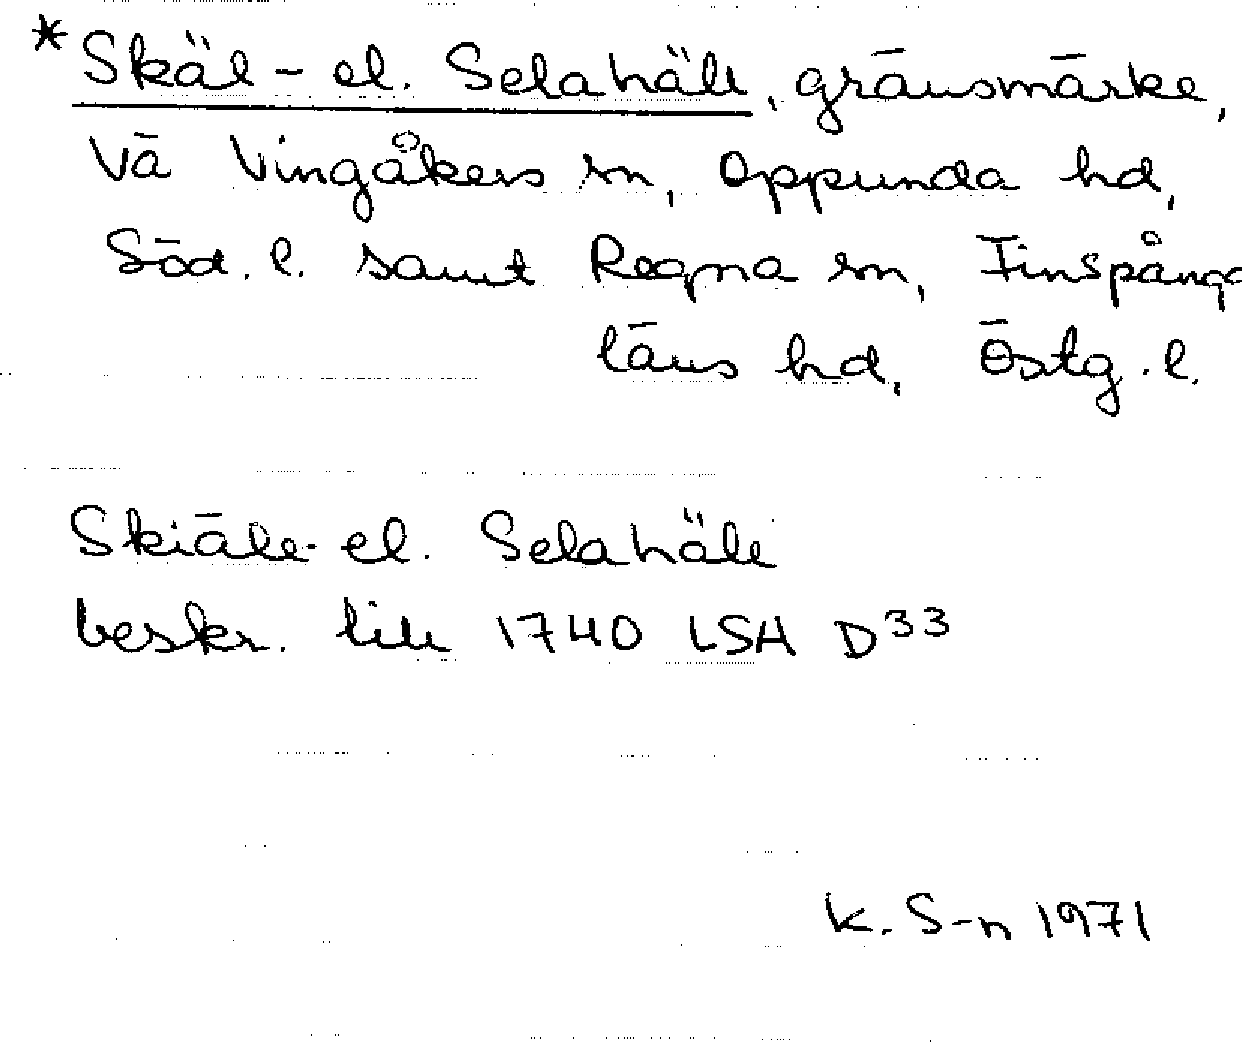 *Skäl- el. Selahäll, gränsmärke,
Vä Vingåkers sn, Oppunda hd,
Söd. l. samt Regna sn, Finspånga
läns hd, Östg. l.
Skiäle- el. Selahäll
beskr. till 1740 LSA D33
K. S-n 1971